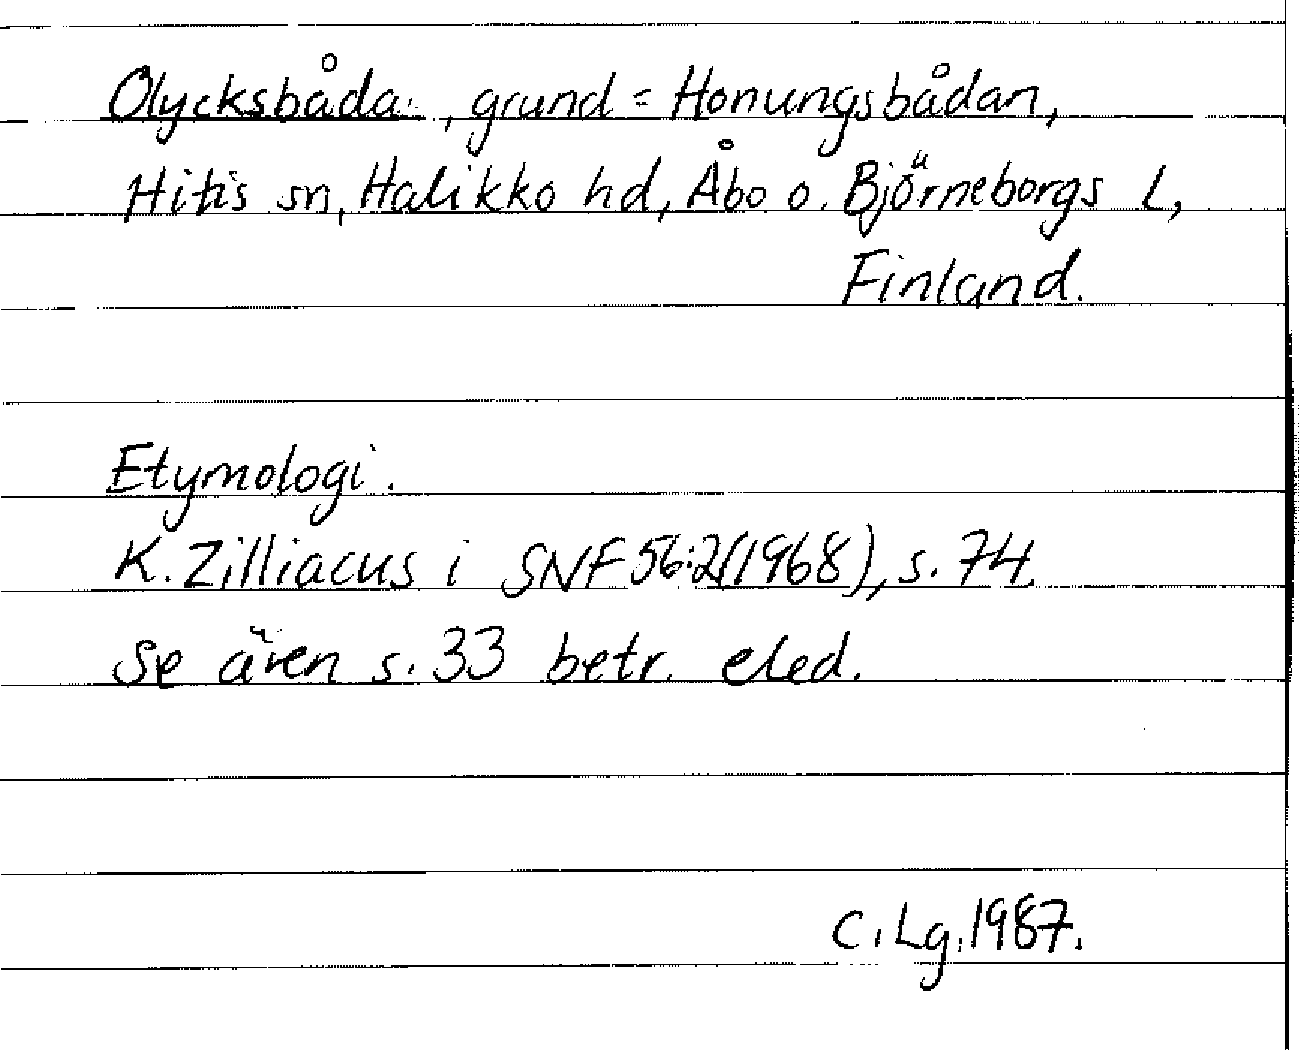 Olycksbåda, grund = Honungsbådan,
Hitis sn, Halikko hd, Åbo o. Björneborgs L,
Finland.
Etymologi.
K. Zilliacus i SNF 56:2(1968), s. 74.
Se även s. 33 betr. eled.
C. Lg. 1987.